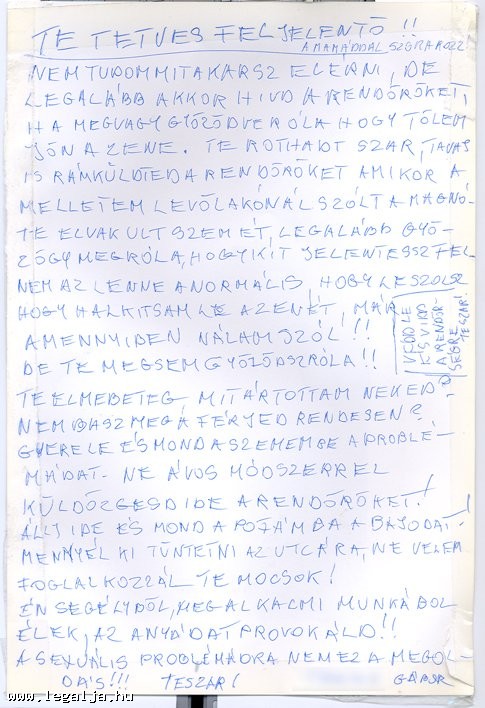 TE TETVES FELJELENTŐ !!
A MAMÁDDAL SZÓRAKOZZ
NEM TUDOM MIT AKARSZ ELÉRNI, DE
LEGALÁBB AKKOR HIVD A RENDŐRÖKET,
HA MEGVAGY GYŐZŐDVE RÓLA HOGY TŐLEM
JÖN A ZENE. TE ROTHADT SZAR, TAVAJ
IS RÁMKÜLDTED A RENDŐRÖKET AMIKOR A
MELLETEM LEVŐ LAKÓNÁL SZÓLT A MAGNÓ-
TE ELVAKULT SZEMÉT, LEGALÁBB GYŐ-
ZŐGY MEG RÓLA, HOGY KIT JELENTESSZ FEL
NEM AZ LENNE A NORMÁLIS, HOGY LESZÓLSZ
HOGY HALKITSAM LE A ZENÉT, MÁR
AMENNYIBEN NÁLAM SZÓL !!
DE TE MEGSEM GYŐZŐDSZ RÓLA !!
VEDD LE
ÉS VIDD
A RENDŐR-
SÉGRE
TESZAR!
TE ELMEBETEG MIT ÁRTOTTAM NEKED?
NEM BASZ MEG A FÉRJED RENDESEN?
GYERE LE ÉS MOND A SZEMEMBE A PROBLÉ-
MÁDAT- NE ÁVOS MÓDSZERREL
KÜLDÖZGESD IDE A RENDŐRÖKET!
ÁLLJ IDE ÉS MOND A POFÁMBA A BAJODAT!
MENNYÉL KI TÜNTETNI AZ UTCÁRA, NE VELEM
FOGLALKOZZÁL TE MOCSOK!
ÉN SEGÉLYBŐL, MEG ALKALMI MUNKÁBOL
ÉLEK, AZ ANYÁDAT PROVOKÁLD!!
A SEXUÁLIS PROBLÉMÁDRA NEM EZ A MEGOL-
DÁS!!! TESZAR! GÁBOR
www.legalja.hu